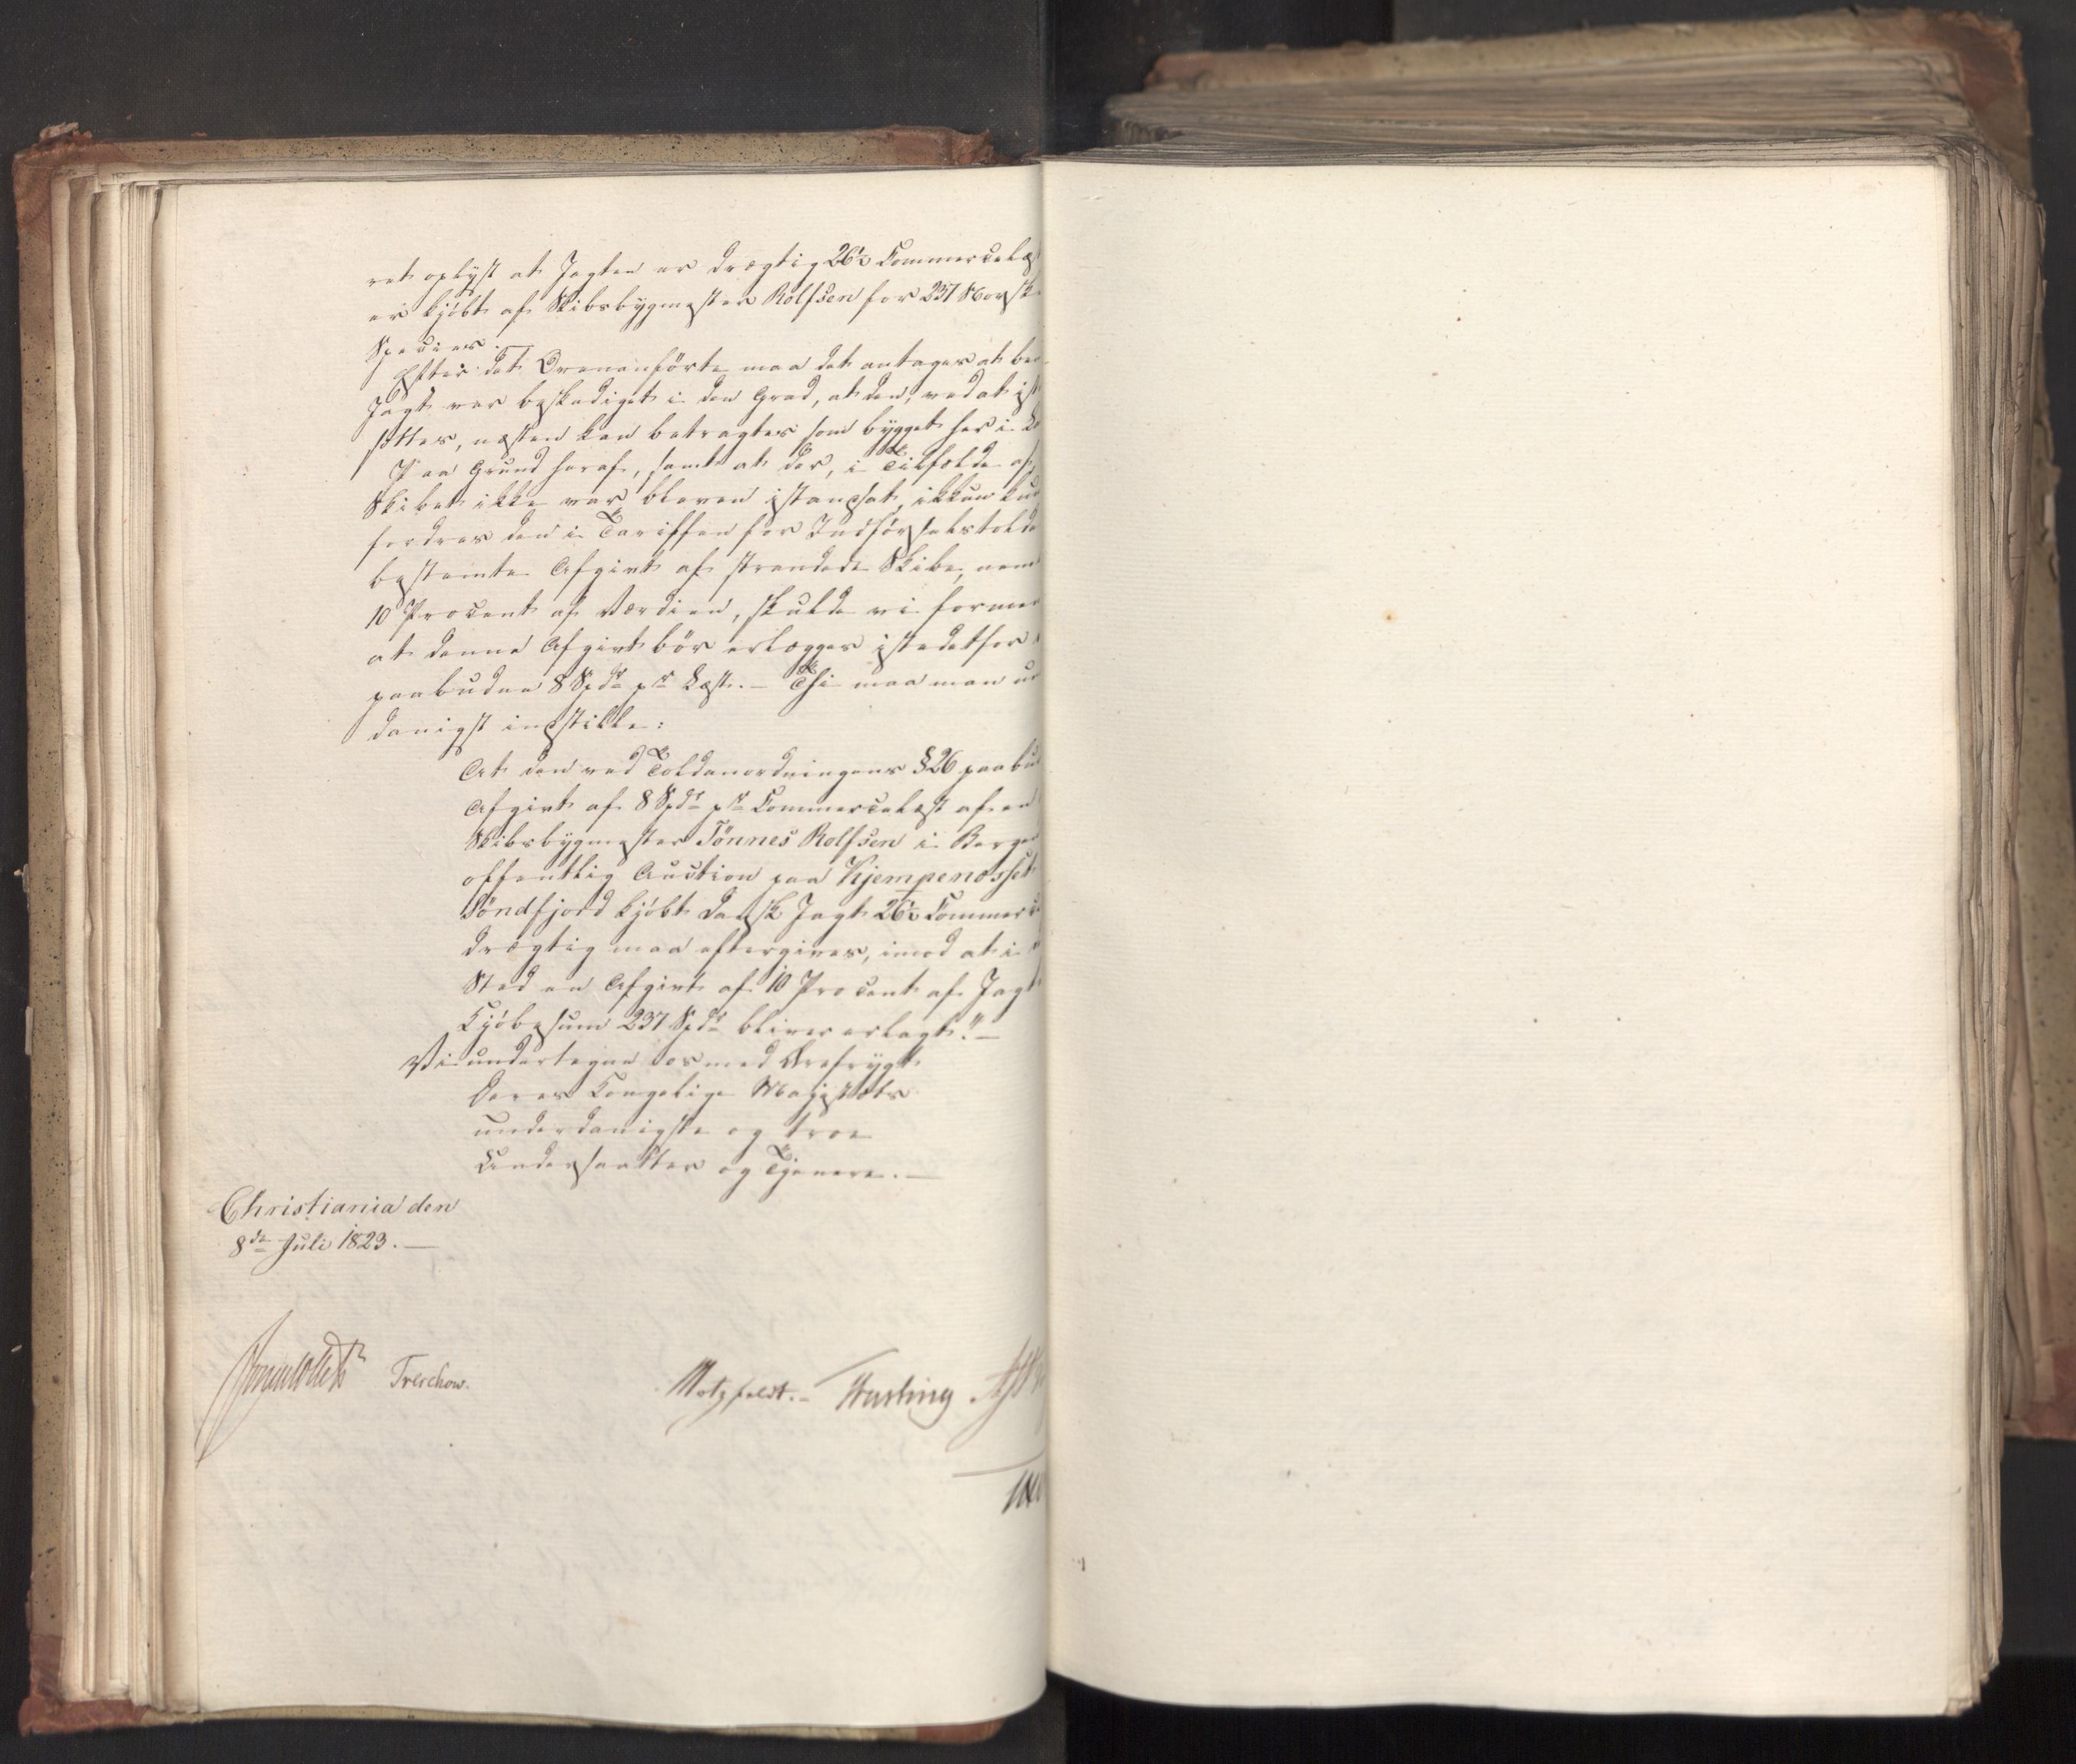 ret oplyst at Jagten er drægtig 26½ Commercelæ
er kjöbt af Skibsbygmester Rolfsen for 237 Norske
Species.—
Efter det Ovenanförte maa det antages at be
Jagt var beskadiget i den Grad, at den, ved at ist
sættes, næsten kan betragtes som bygget her i
Paa Grund heraf, samt at der, i Tilfælde af
Skibet ikke var bleven istandsat, ikkun kun
fordres den i Tariffen for Indförselstolde
bestemte Afgivt af strandede Skibe, nem
10 Procent af Værdien, skulde vi formee
at denne Afgivt bör erlægges istedetfor
paabudne 8 Spdr pr Læst.— Thi maa man un
danigst indstille:
At den ved Toldanordningens §26 paabu
Afgivt af 8 Spdr pr Commercelæst af en
Skibsbygmester Tönnes Rolfsen i Bergen
offentlig Auction paa Kjempenosset
Söndfjord kjöbt dansk Jagt 26½ Commerce
drægtig maa eftergives, imod at i
Sted en Afgivt af 10 Procent af Jagt
Kjöbesum 237 Spdr bliver erlagt."—
Vi undertegne os med Ærefrygt
Deres Kongelige Majestæts
underdanigste og troe
Undersaatter og Tjenere.—
Christiania den
8de Juli 1823.—
Treschow.
Motzfeldt.— Hasting